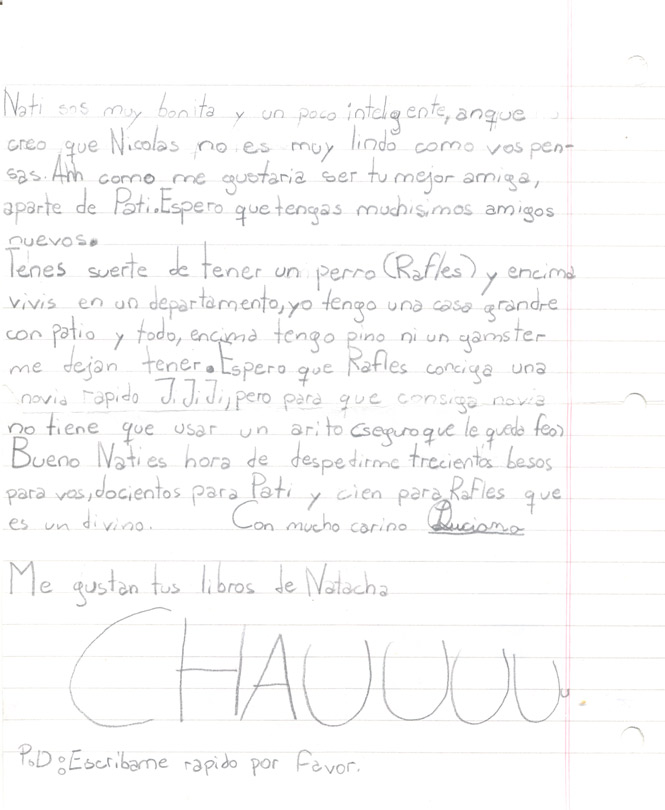 Nati sos muy bonita y un poco intelgente, anque
creo que Nicolas no es muy lindo como vos pen-
sas. Ahh como me gustaria ser tu mejor amiga,
aparte de Pati. Espero que tengas muchisimos amigos
nuevos.
Tenes suerte de tener un perro (Rafles) y encima
vivis en un departamento, yo tengo una casa grandre
con patio y todo, encima tengo pino ni un gamster
me dejan tener. Espero que Rafles conciga una
novia rapido Ji Ji Ji, pero para que consiga novia
no tiene que usar un arito (seguro que le queda feo)
Bueno Nati es hora de despedirme trecientos besos
para vos, docientos para Pati y cien para Rafles que
es un divino. Con mucho carino Luciana
Me gustan tus libros de Natacha
CHAUUUUU
P.D: Escribame rapido por favor.